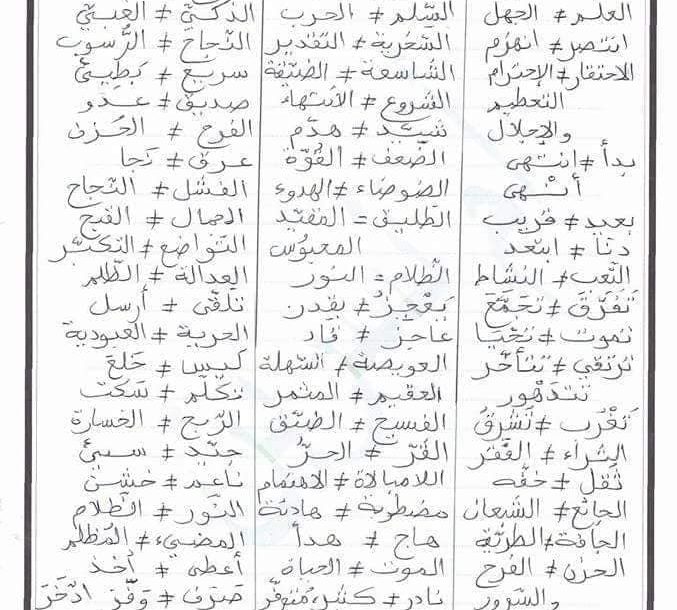 العلم ≠ الجهل
انتصر ≠ انهزم
الاحتقار ≠ الإحترام
التعظيم
والإجلال
بدأ ≠ انتهى
أنهى
بعيد ≠ قريب
دنا ≠ ابتعد
التعب ≠ النشاط
تفرّق ≠ تجمّع
تموت ≠ تحيا
ترتقي ≠ تتأخّر
تتدهور
تغرب ≠ تشرق
الثراء ≠ الفقر
ثقل ≠ خفّة
الجائع ≠ الشبعان
الجافة ≠ الطريّة
الحزن ≠ الفرح
والسرور
السّلم ≠ الحرب
السّخرية ≠ التقدير
الشاسعة ≠ الضيّقة
الشروع ≠ الانتهاء
شيّد ≠ هدّم
الضّعف ≠ القوّة
الضوضاء ≠ الهدوء
الطّليق = المقيّد
المحبوس
الظّلام = النور
يعجز ≠ يقدر
عاجز ≠ قاد
العويصة ≠ السّهلة
العقيم ≠ المثمر
الفسيح ≠ الضيّق
القرّ ≠ الحرّ
اللامبالاة ≠ الاهتمام
مضطربة ≠ هادئة
هاج ≠ هدأ
الموت ≠ الحياة
نادر ≠ كثير متوفّر
الذكيّ ≠ الغبيّ
النّجاح ≠ الرّسوب
سريع ≠ بطيئ
صديق ≠ عدو
الفرح ≠ الحزن
غرق ≠ نجا
الفشل ≠ النّجاح
الجمال ≠ القبح
التّواضع ≠ التكبّر
العدالة ≠ الظّلم
تلقّى ≠ أرسل
الحرية ≠ العبودية
لبس ≠ خلع
تكلّم ≠ سكت
الرّبح ≠ الخسارة
جيّد ≠ سيئ
ناعم ≠ خشن
النّور ≠ الظّلام
المضيء ≠ المظلم
أعطى ≠ أخذ
صرف ≠ وفّر ادّخر